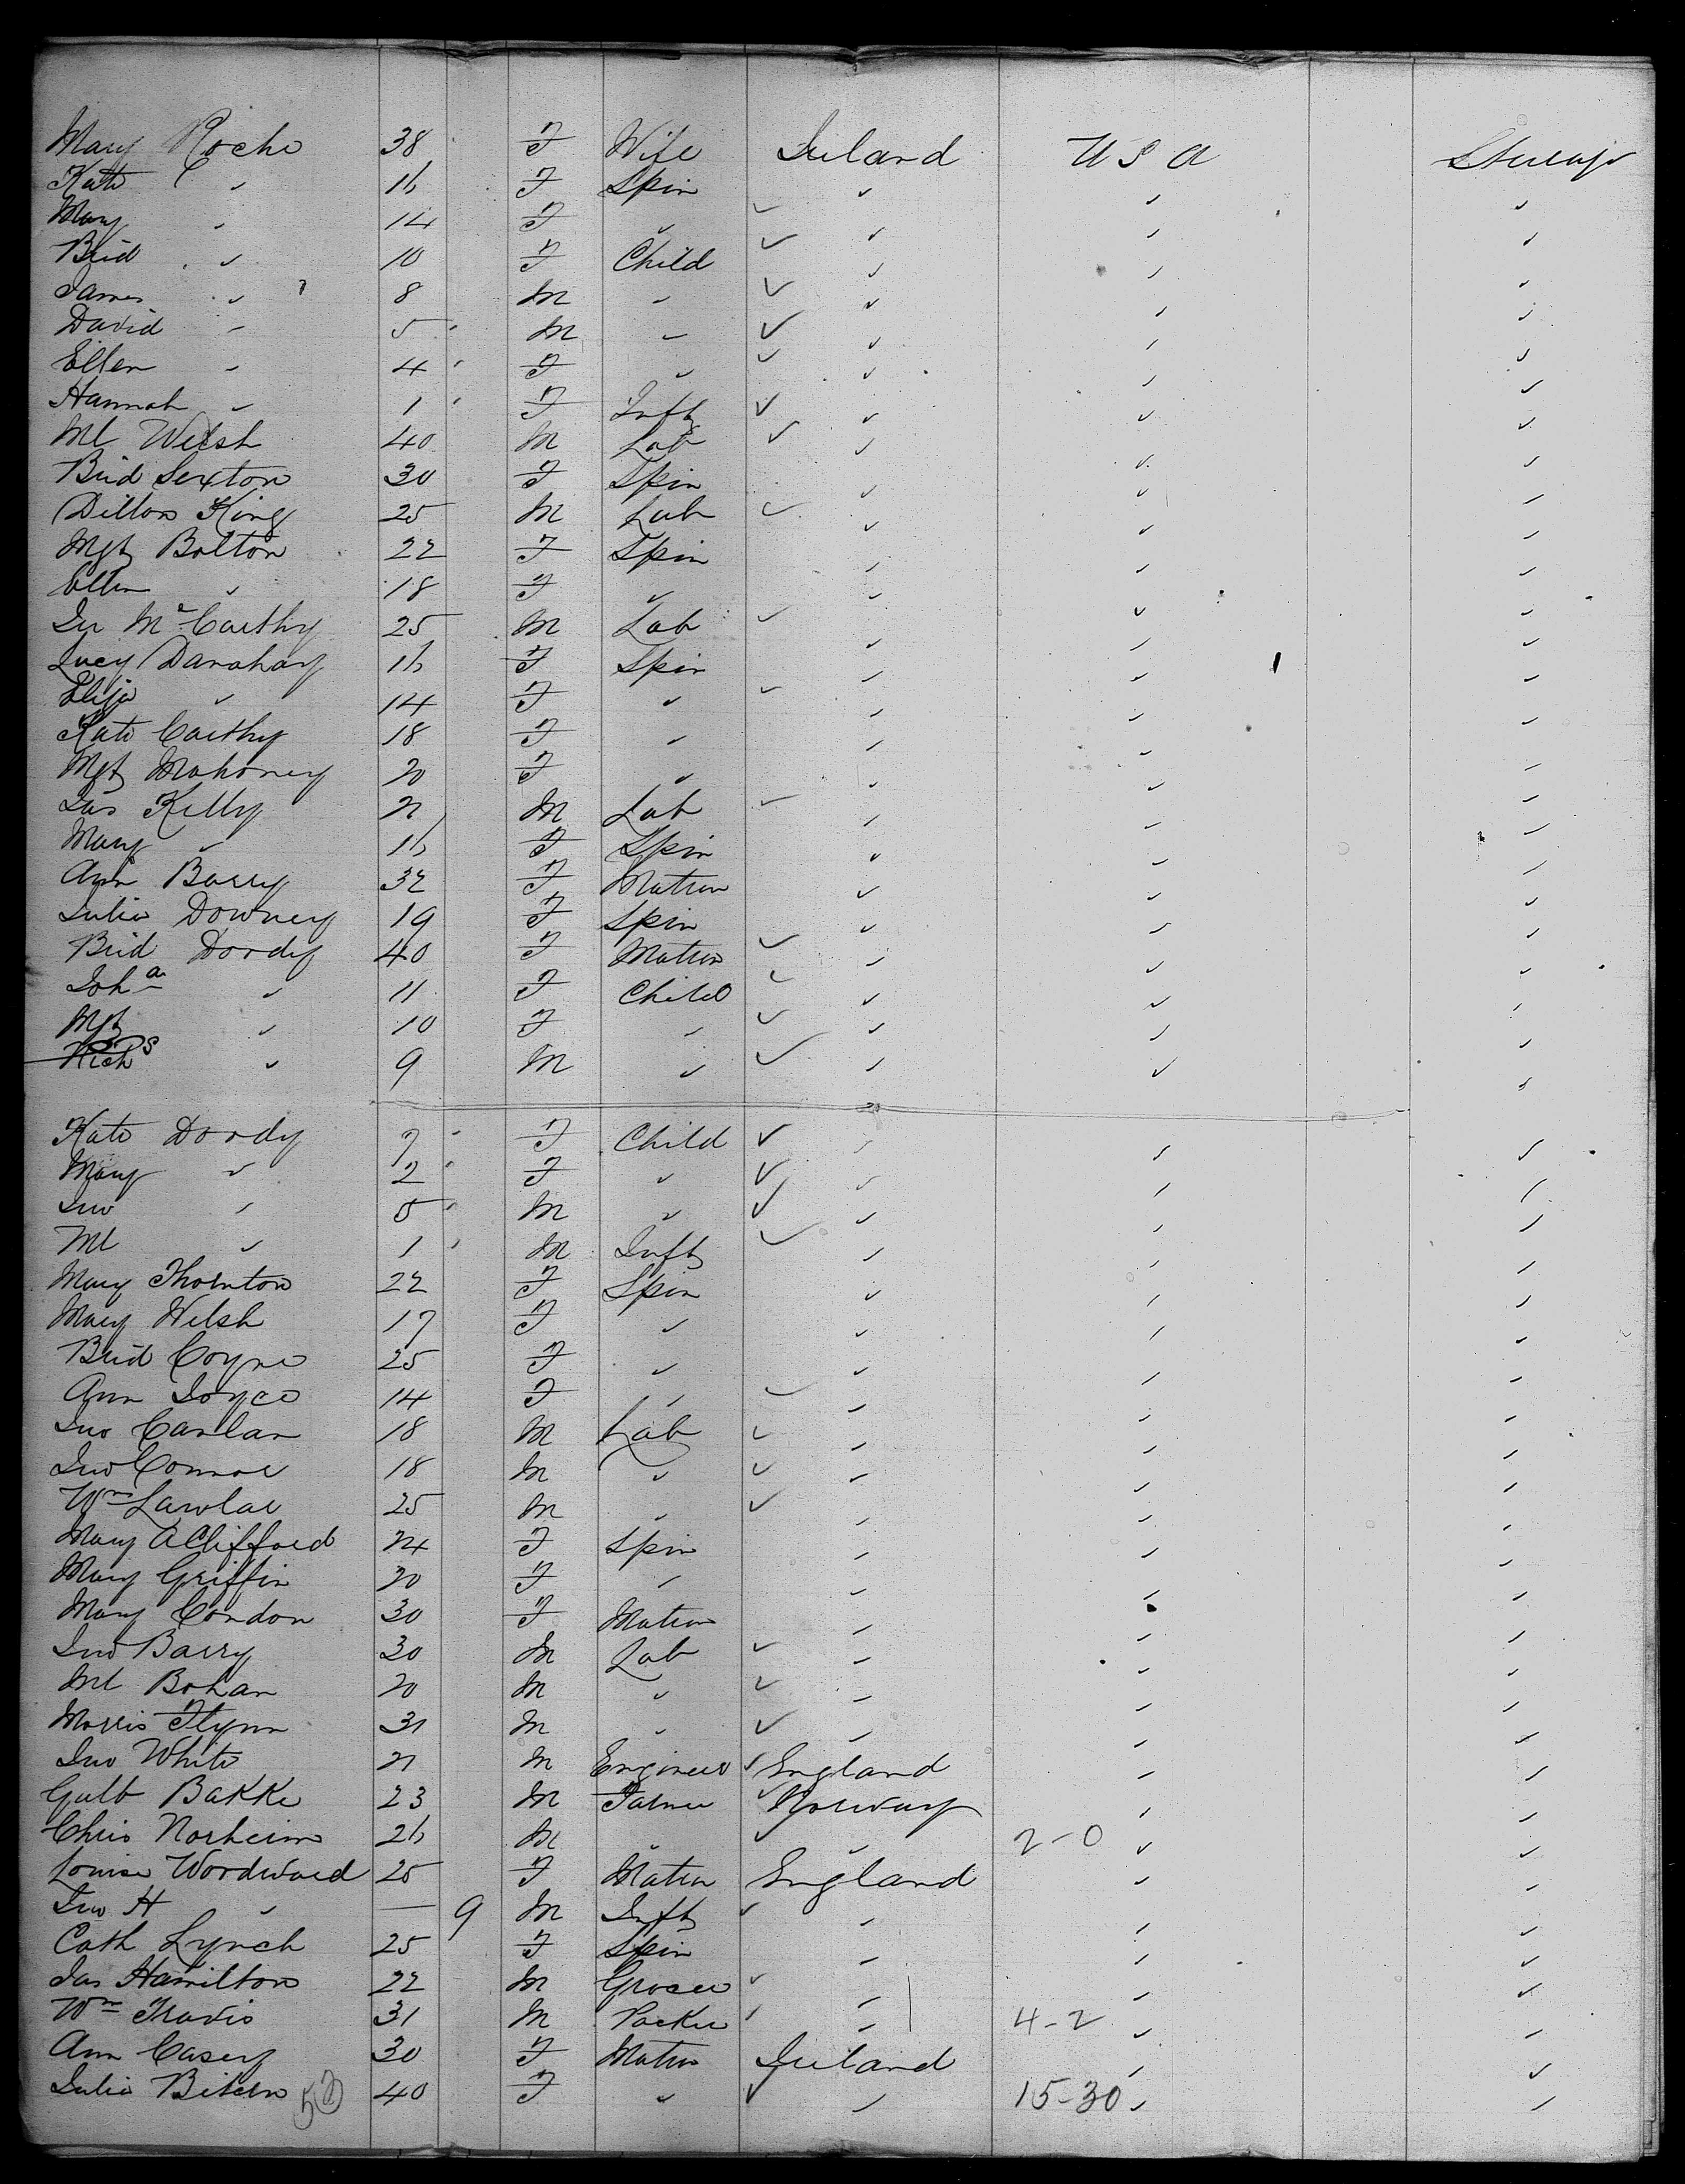 Mary Roche 38 F Wife Ireland U S A Steerage
Kate " 16 F Spin " " "
Mary " 14 F " " " "
Brid " 10 F Child " " "
James " 8 M " " " "
David " 5 M " " " "
Ellen " 4 F " " " "
Hannah " 1 F Inft " " "
Ml Welsh 40 M Lab " " "
Brid Sexton 30 F Spin " " "
Dillon King 25 M Lab " " "
Mgt Bolton 22 F Spin " " "
Ellen " 18 F " " " "
Jer McCarthy 25 M Lab " " "
Lucy Danahay 16 F Spin " " "
Eliza " 14 F " " " "
Kate Carthy 18 F " " " "
Mgt Mahoney 20 F " " " "
Jas Kelly 21 M Lab " " "
Mary " 16 F Spin " " "
Ann Barry 32 F Matron " " "
Julia Downey 19 F Spin " " "
Brid Doody 40 F Matron " " "
Joha " 11 F Child " " "
Mgt " 10 F " " " "
Richs " 9 M " " " "
Kate Doody 7 F Child " " "
Mary " 2 F " " " "
Jno " 5 M " " " "
Ml " 1 M Inft " " "
Mary Thornton 22 F Spin " " "
Mary Welsh 17 F " " " "
Brid Coyne 25 F " " " "
Ann Joyce 14 F " " " "
Jno Canlan 18 M Lab " " "
Jno Connor 18 M " " " "
Wm Lawlar 25 M " " " "
Mary A Clifford 24 F Spin " " "
Mary Griffin 20 F " " " "
Mary Condon 30 F Matron " " "
Jno Barry 30 M Lab " " "
Ml Bohan 20 M " " " "
Morris Flynn 31 M " " " "
Jno White 21 M Engineer England " "
Gulb Bakke 23 M Farmer Norway " "
Chris Norheim 26 M " " 2-0 " "
Louisa Woodward 25 F Matron England " "
Jno H " — 9 M Inft " " "
Cath Lynch 25 F Spin " " "
Jas Hamilton 22 M Grocer " " "
Wm Travis 31 M Packer " 4-2 " "
Ann Casey 30 F Matron Ireland " "
Julia 40 F " " 15-30 " "
52